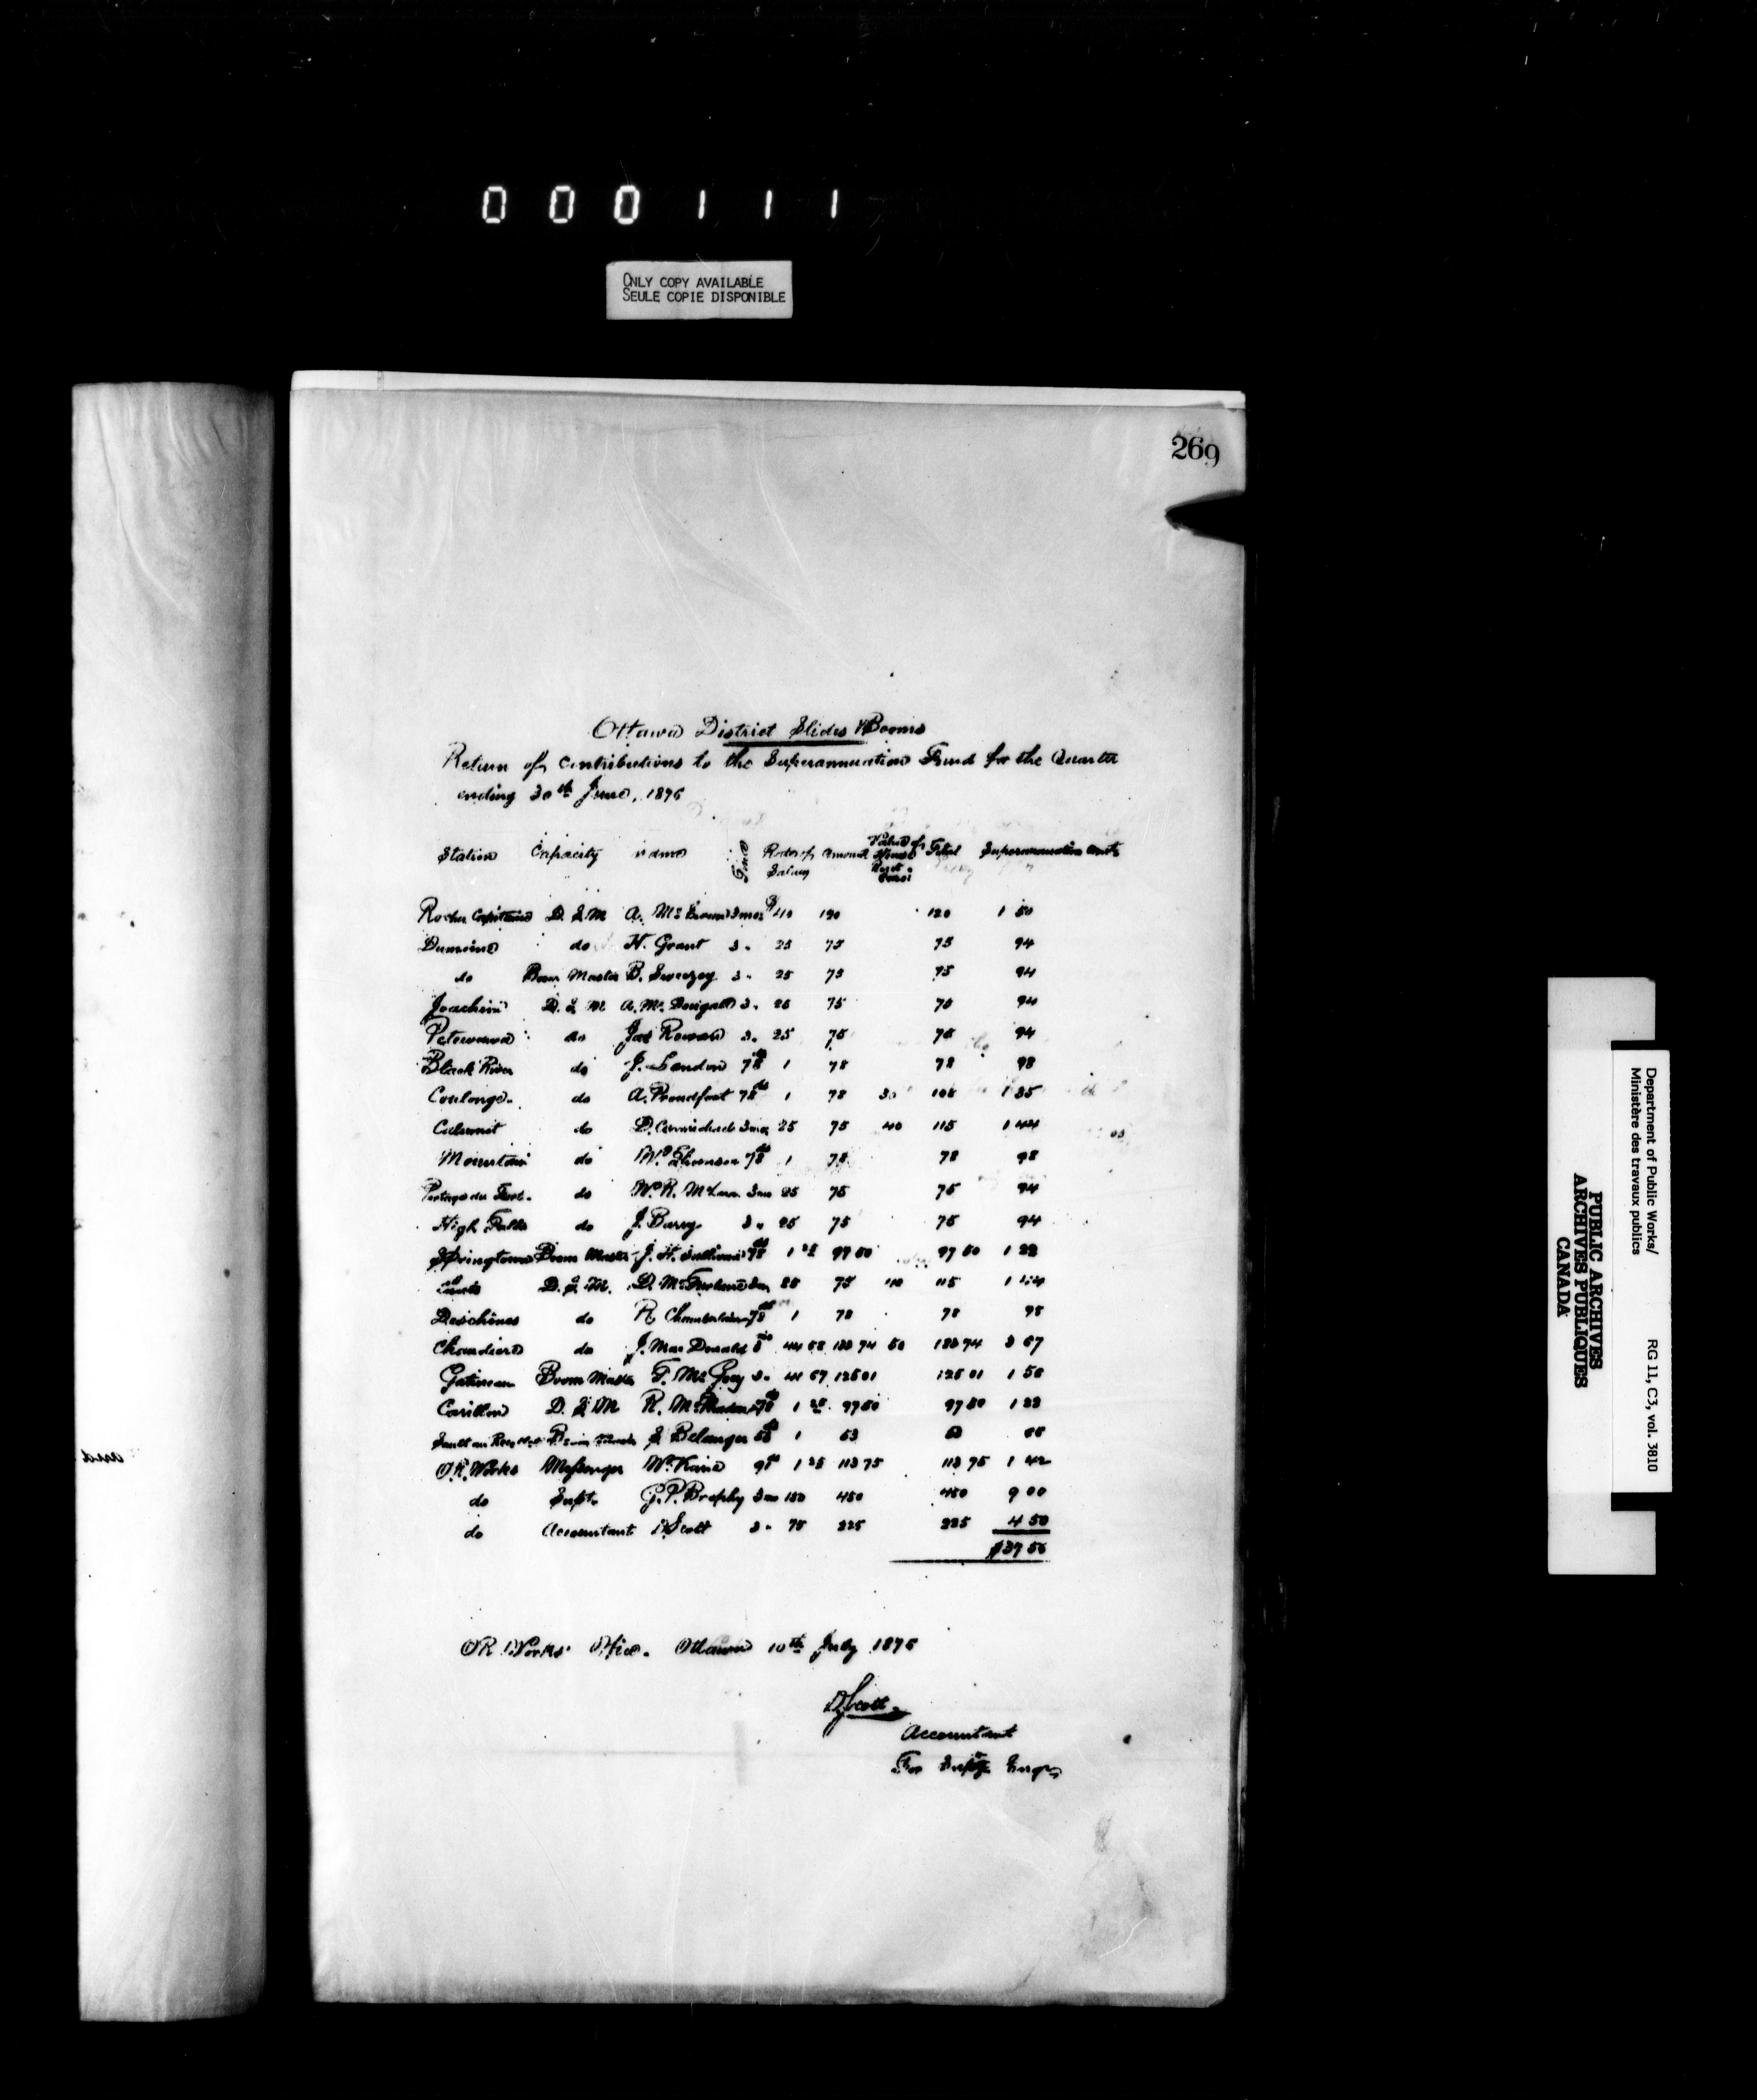 000111
ONLY COPY AVAILABLE
SEULE COPIE DISPONIBLE
269
Ottawa District Slides & Booms
Return of contributions to the Superannuation Fund for the Quarter
ending 30th June, 1876
Station Capacity Name Time Rate of Salary Amount Value of House Rent Total Superannuation
Rocher Capitaine D. S. M A. McBrown 3 mos $40 120 120 1 50
Dumoine do H. Grant 3 " 25 75 75 94
do Boom Master B. Sweezey 3 " 25 75 75 94
Joachim D. S. M A. McDougall 3 " 25 75 75 94
Petewawa do Jas Rowan 3 " 25 75 75 94
Black River do J. Landon 78 ds 1 78 78 98
Coulonge do A. Proudfoot 78 ds 1 78 30 108 1 35
Calumet do D. Carmichael 3 mos 25 75 40 115 1 44
Mountain do Wm 78 ds 1 78 78 98
Portage du Fort do Wm R. 3 mos 25 75 75 94
High Falls do J. Barry 3 " 25 75 75 94
Springtown Boom Master J. H. Sullivan 78 ds 1 25 97 50 97 50 1 22
D. S. M. D. McFarlane 3 m 25 75 40 115 1 44
Deschênes do R. Chamberlain 78 ds 1 78 78 98
Chaudiere do J. MacDonald 3 mo 44 58 133 74 50 183 74 3 67
Gatineau Boom Master F. McGoey 3 " 41 67 125 01 125 01 1 56
Carillon D. S. M R. 78 ds 1 25 97 50 97 50 1 22
Sault au Recollet Boom Master S. Belanger 53 ds 1 53 53 66
O.R. Works Messenger Wm Kane 91 ds 1 25 113 75 113 75 1 42
do Supt. G. P. Brophy 3 mo 150 450 450 9 00
do Accountant D Scott 3 " 75 225 225 4 50
$37 56
O R Works Office. Ottawa 10th July 1876
D Scott
Accountant
For Supt Engr
and
Department of Public Works/
Ministère des travaux publics
RG 11, C3, vol. 3810
PUBLIC ARCHIVES
ARCHIVES PUBLIQUES
CANADA